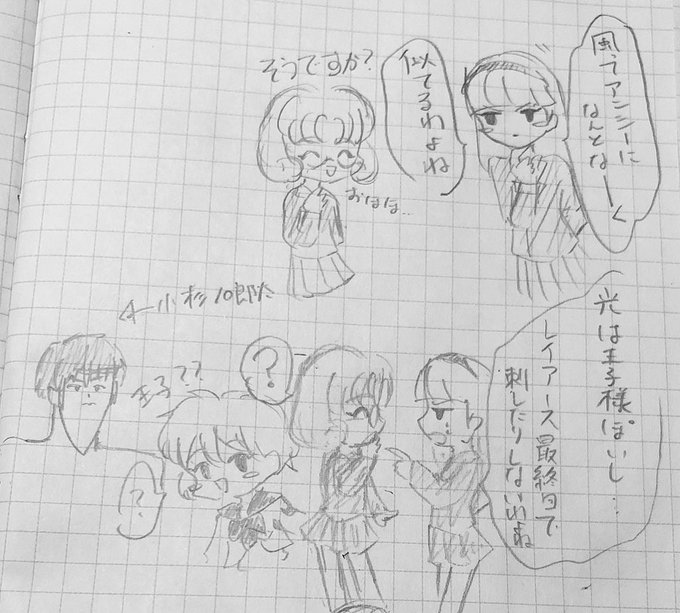 風ってアンシーに
なんとなーく
似てるわよね
そうですか?
おほほ‥
光は王子様ぽいし…
レイアース最終回で
刺したりしないわよね
?
王子??
?
←小杉10郎太